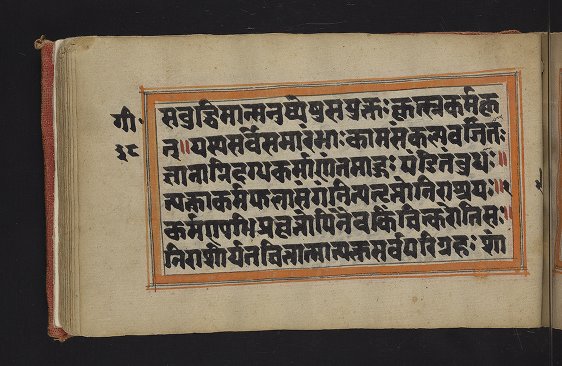 गी॰
३८
सबुद्धिमान्मनुष्येषुसयुक्तः कृत्स्नकर्मकृ
त्॥यस्यसर्वेसमारंभाः कामसंकल्पवर्जितः
ज्ञानाग्निदग्धकर्माणंतमाहुः पंडितंबुधाः॥
त्यक्त्वाकर्मफलासंगंनित्यतृप्तोनिराश्रयः॥
कर्मण्यभिप्रवृत्तोपिनैवकिंचित्करोतिसः॥
निराशीर्यतचित्तात्मात्यक्तसर्वपरिग्रहः शा